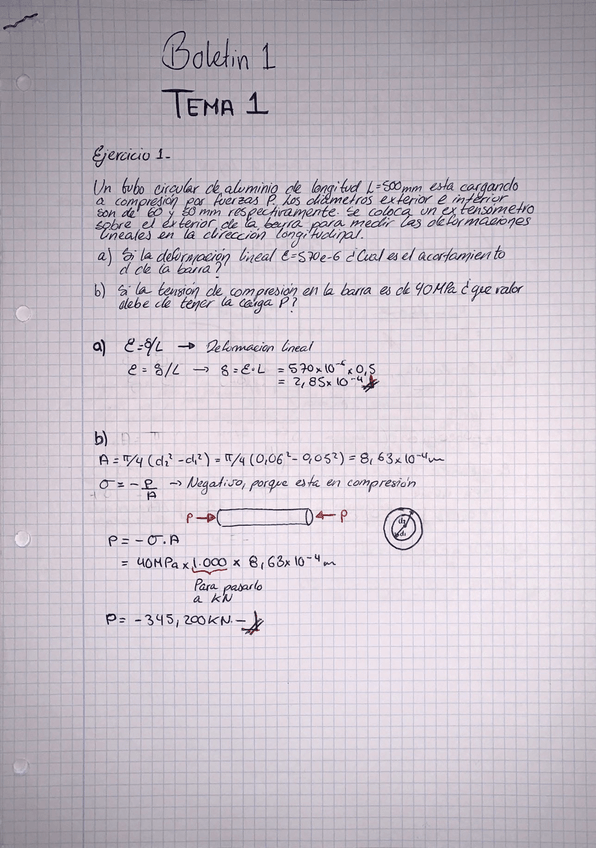 Boletin 1
TEMA 1
Ejercicio 1.-
Un tubo circular de aluminio de longitud L=500mm esta cargando
a compresión por fuerzas P. Los diámetros exterior e interior
son de 60 y 50 mm respectivamente. Se coloca un extensómetro
sobre el exterior de la beyra para medir las deformaciones
lineales en la dirección longitudinal.
a) Si la deformación lineal ε=570e-6 ¿Cual es el acortamiento
d de la barra?
b) Si la tensión de compresión en la barra es de 40MPa ¿que valor
debe de tener la carga P?
a) ε=δ/L → Deformacion lineal
ε = δ/L → δ=ε·L = 570×10⁻⁶×0,5
= 2,85×10⁻⁴
b)
A = π/4 (d₂²-d₁²) = π/4 (0,06²-0,05²) = 8,63×10⁻⁴m
σ = - P/A → Negativo, porque esta en compresión
P → ← P
d₂
d₁
P = -σ.A
= 40MPa × 1.000 × 8,63×10⁻⁴m
Para pasarlo
a KN
P = -345,200KN.-